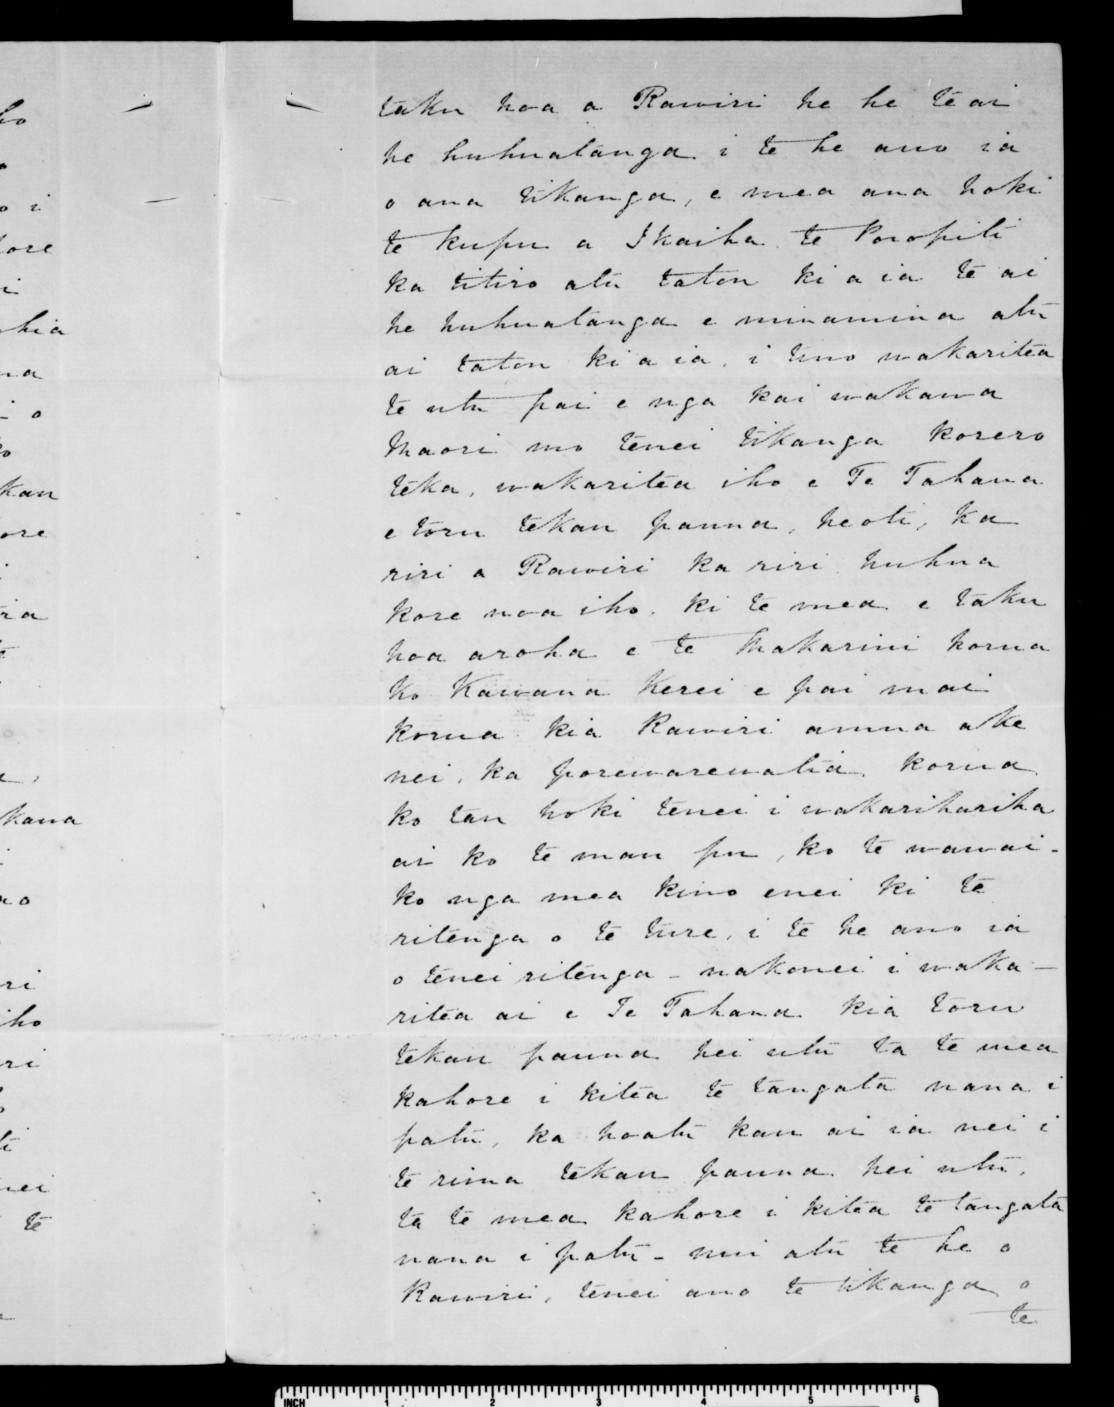 ho
o i
kore
i
hia
na
o
kau
ore
ria
te
kana
no
ri
iho
ri
ti
nei
te
taku hoa a Rawiri he he te ai
he huhuatanga i te he ano ia
o ana tikanga, e mea ana hoki
te kupu a Ihaiha te Poropiti
ka titiro atu tatou ki a ia te ai
he huhuatanga e minamina atu
ai tatou ki a ia, i tino wakaritea
te utu pai e nga kai wakawa
Maori mo tenei tikanga korero
teka, wakaritea iho e Te Tahana
e toru tekau pauna, heoti, ka
riri a Rawiri ka riri huhua
kore noa iho. ki te mea e taku
hoa aroha e te Makarini korua
ko Kawana Kerei e pai mai
korua kia Rawiri amua ake
nei, ka porewarewatia korua
ko tau hoki tenei i wakarihariha
ai ko te mau pu, ko te wawai-
ko nga mea kino enei ki te
ritenga o te ture, i te he ano ia
o tenei ritenga - nakonei i waka-
ritea ai e Te Tahana kia toru
tekau pauna hei utu ta te mea
kahore i kitea te tangata nana i
patu, ka hoatu kau ai ia nei i
te rima tekau pauna hei utu,
ta te mea kahore i kitea te tangata
nana i patu - nui atu te he o
Rawiri, tenei ano te tikanga o
te
INCH 1 2 3 4 5 6